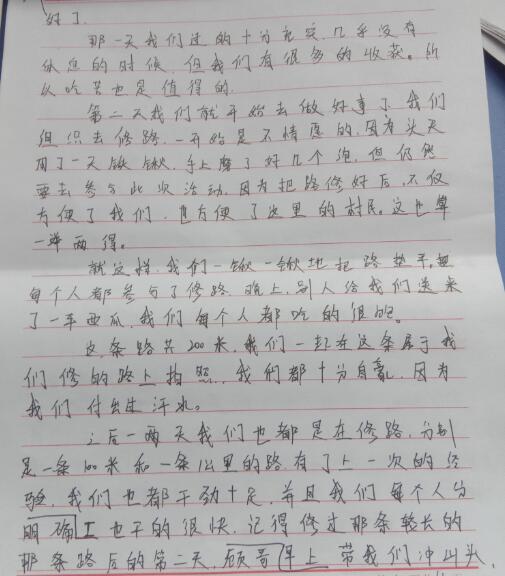 好了。
那一天我们过的十分充实,几乎没有
休息的时候,但我们有很多的收获。所
以吃苦也是值得的。
第二天我们就开始去做好事了,我们
组织去修路。一开始是不情愿的,因为头天
用了一天铁锹,手上磨了好几个泡,但仍然
要去参与此次活动,因为把路修好后,不仅
方便了我们,也方便了这里的村民。这也算
一举两得。
就这样,我们一锹一锹地把路垫平,
每个人都参与了修路,晚上,别人给我们送来
了一车西瓜,我们每个人都吃的很饱。
这条路共200米,我们一起在这条属于我
们修的路上拍照,我们都十分自豪,因为
我们付出过汗水。
之后一两天我们也都是在修路,分别
是一条100米和一条1公里的路,有了上一次的经
验,我们也都干劲十足,并且我们每个人分
工明确也干的很快,记得修过那条较长的
那条路后的第二天,早上硕哥带我们冲山头,